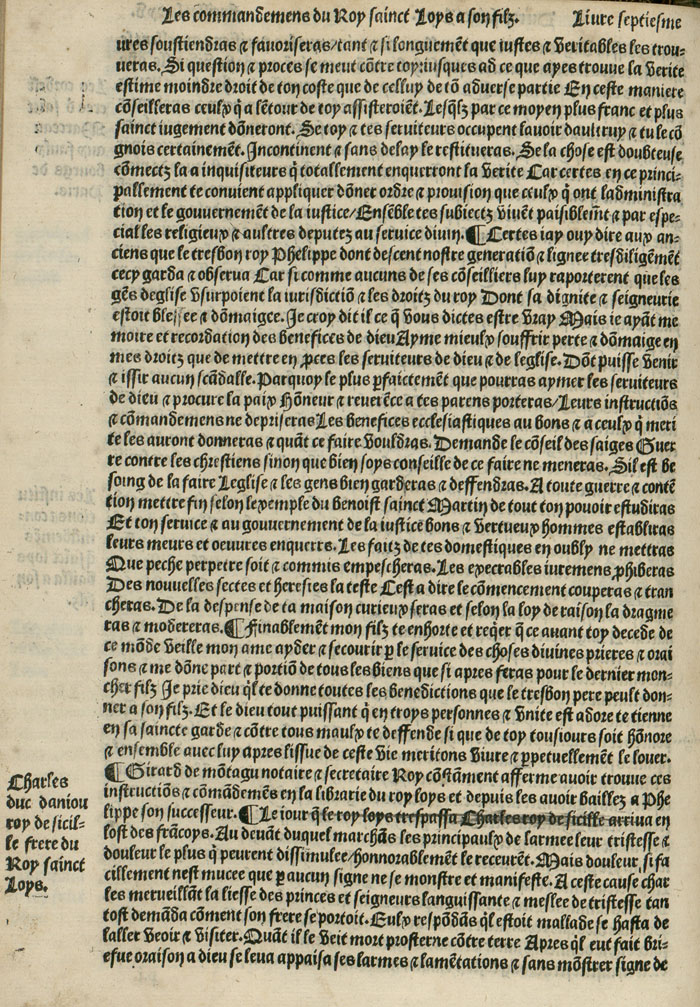 Les commandemens du Roy sainct Loys a son filz. Liure septiesme
ures soustiendras & fauoriseras/tant & si longuemẽt que iustes & veritables les trou-
ueras. Si question & proces se meut cõtre toy: iusques ad ce que ayes trouue la verite
estime moindre droit de ton coste que de celluy de tõ aduerse partie En ceste maniere
cõseilleras ceulx q̃ a lẽtour de toy assisteroiẽt. Lesq̃lz par ce moyen plus franc et plus
sainct iugement dõneront. Se toy & tes seruiteurs occupent lauoir daultruy & tu le cõ
gnois certainemẽt. Incontinent & sans delay le restitueras. Se la chose est doubteuse
cõmectz la a inquisiteurs q̃ totallement enquerront la verite Car certes en ce princi-
pallement te conuient appliquer dõner ordre & prouision que ceulx q̃ ont ladministra
tion et le gouuernemẽt de la iustice/Ensẽble tes subiectz viuẽt paisiblemẽt & par espe-
cial les religieux & aultres deputez au seruice diuin. ¶ Certes iay ouy dire aux an-
ciens que le tresbon roy Phelippe dont descent nostre generatiõ & lignee tresdiligẽmẽt
cecy garda & obserua Car si comme aucuns de ses cõseilliers luy raporterent que les
gẽs deglise vsurpoient la iurisdictiõ & les droitz du roy Dont sa dignite & seigneurie
estoit blessee & dõmaigee. Je croy dit il ce q̃ vous dictes estre vray Mais ie ayãt me
moire et recordation des benefices de dieu Ayme mieulx souffrir perte & dõmaige en
mes droitz que de mettre en ꝓces les seruiteurs de dieu & de leglise. Dõt puisse venir
& issir aucun scãdalle. Parquoy le plus ꝑfaictemẽt que pourras aymer les seruiteurs
de dieu & procure la paix Hõneur & reuerẽce a tes parens porteras/Leurs instructiõs
& cõmandemens ne depriseras Les benefices ecclesiastiques au bons & a ceulx q̃ meri
te les auront donneras & quãt ce faire vouldras. Demande le cõseil des saiges Guer
re contre les chrestiens sinon que bien soys conseille de ce faire ne meneras. Sil est be
soung de la faire Leglise & les gens bien garderas & deffendras. A toute guerre & contẽ
tion mettre fin selon lexemple du benoist sainct Martin de tout ton pouoir estudiras
Et ton seruice & au gouuernement de la iustice bons & vertueux hommes establiras
leurs meurs et oeuures enquerrs. Les faitz de tes domestiques en oubly ne mettras
Que peche perpetre soit & commis empescheras. Les execrables iuremens ꝓhiberas
Des nouuelles sectes et heresies la teste Cest a dire le cõmencement couperas & tran
cheras. De la despense de ta maison curieux seras et selon la loy de raison la dragme
ras & modereras. ¶ Finablemẽt mon filz te enhorte et req̃er q̃ ce auant toy decede de
ce mõde veille mon ame ayder & secourir ꝑ le seruice des choses diuines prieres & orai
sons & me dõne part & portiõ de tous les biens que si apres feras pour le dernier mon-
cher filz Je prie dieu q̃l te donne toutes les benedictions que le tresbon pere peult don-
ner a son filz. Et le dieu tout puissant q̃ en troys personnes & vnite est adore te tienne
en sa saincte garde & cõtre tous maulx te deffende si que de toy tousiours soit hõnore
& ensemble auec luy apres lissue de ceste vie meritons viure & ꝑpetuellemẽt le louer.
¶ Girard de mõtagu notaire & secretaire Roy cõstãment afferme auoir trouue ces
instructiõs & cõmãdemẽs en la librarie du roy loys et depuis les auoir baillez a Phe
lippe son successeur. ¶ Le iour q̃ le roy loys trespassa Charles roy de sicille arriua en
lost des frãcoys. Au deuãt duquel marchãs les principaulx de larmee leur tristesse &
douleur le plus q̃ peurent dissimulee/honnorablemẽt le receurẽt. Mais douleur si fa
cillement nest mucee que ꝑ aucun signe ne se monstre et manifeste. A ceste cause char
les merueillãt la liesse des princes et seigneurs languissante & meslee de tristesse tan
tost demãda cõment son frere se portoit. Eulx respõdãs q̃l estoit mallade se hasta de
laller veoir & visiter. Quãt il le veit mort prosterne cõtre terre Apres q̃l eut fait bri-
efue oraison a dieu se leua appaisa ses larmes & lamẽtations & sans mõstrer signe de
Charles
duc daniou
roy de sicil-
le frere du
Roy sainct
Loys.